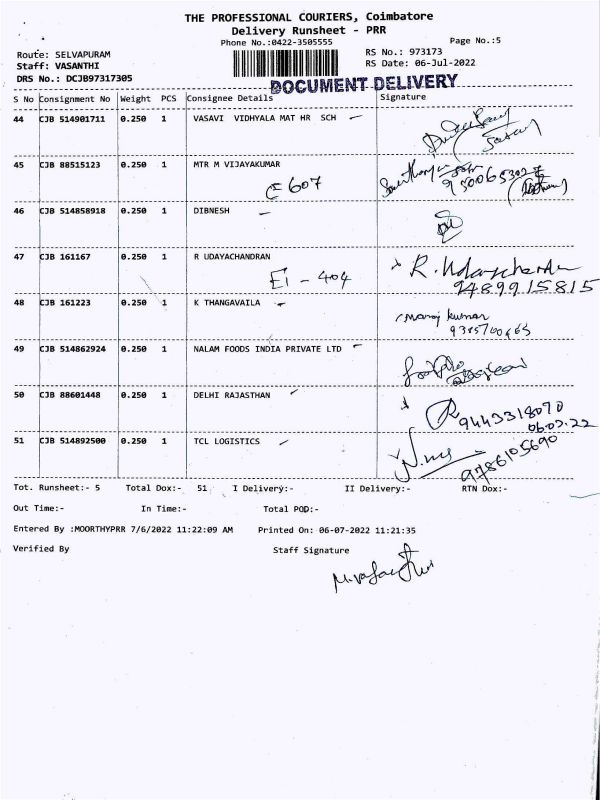 THE PROFESSIONAL COURIERS, Coimbatore
Delivery Runsheet - PRR
Phone No.:0422-3505555
Page No.:5
Route: SELVAPURAM
RS No.: 973173
Staff: VASANTHI
RS Date: 06-Jul-2022
DRS No.: DCJB97317305
DOCUMENT DELIVERY
S No Consignment No Weight PCS Consignee Details Signature
44 CJB 514901711 0.250 1 VASAVI VIDHYALA MAT HR SCH
45 CJB 88515123 0.250 1 MTR M VIJAYAKUMAR
E 607
46 CJB 514858918 0.250 1 DIBNESH
47 CJB 161167 0.250 1 R UDAYACHANDRAN R. Udayachandran
E1 - 404 9489915815
48 CJB 161223 0.250 1 K THANGAVAILA Manoj kumar
49 CJB 514862924 0.250 1 NALAM FOODS INDIA PRIVATE LTD
50 CJB 88601448 0.250 1 DELHI RAJASTHAN
9443318070
51 CJB 514892500 0.250 1 TCL LOGISTICS 9786105690
Tot. Runsheet:- 5 Total Dox:- 51 I Delivery:- II Delivery:- RTN Dox:-
Out Time:- In Time:- Total POD:-
Entered By :MOORTHYPRR 7/6/2022 11:22:09 AM Printed On: 06-07-2022 11:21:35
Verified By Staff Signature